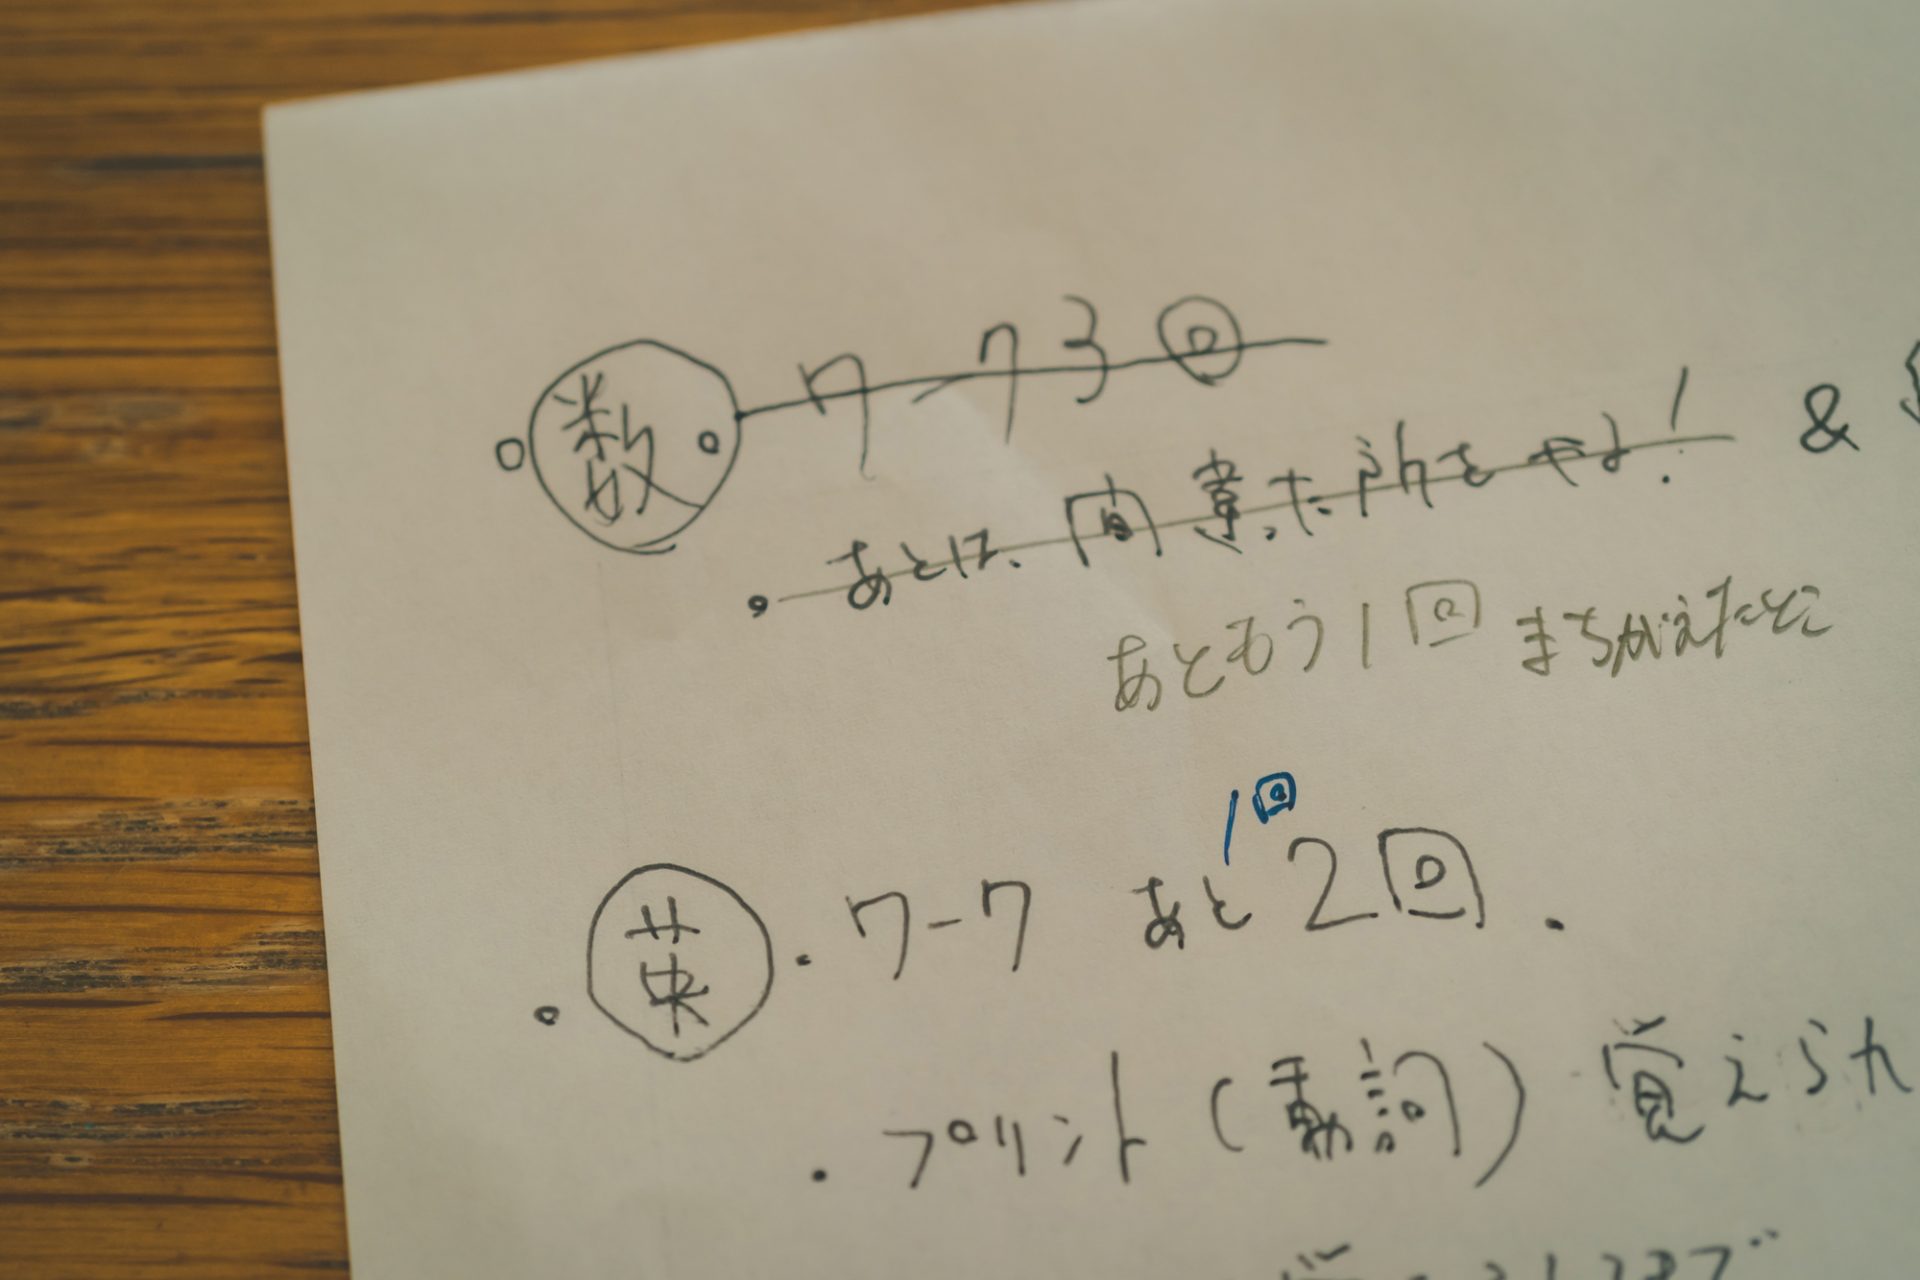 数 ワーク3回
・あとは、間違った所をやる! &
あともう1回 まちがえたとこ
1回
英 ・ワーク あと2回.
・プリント(動詞) 覚えられ